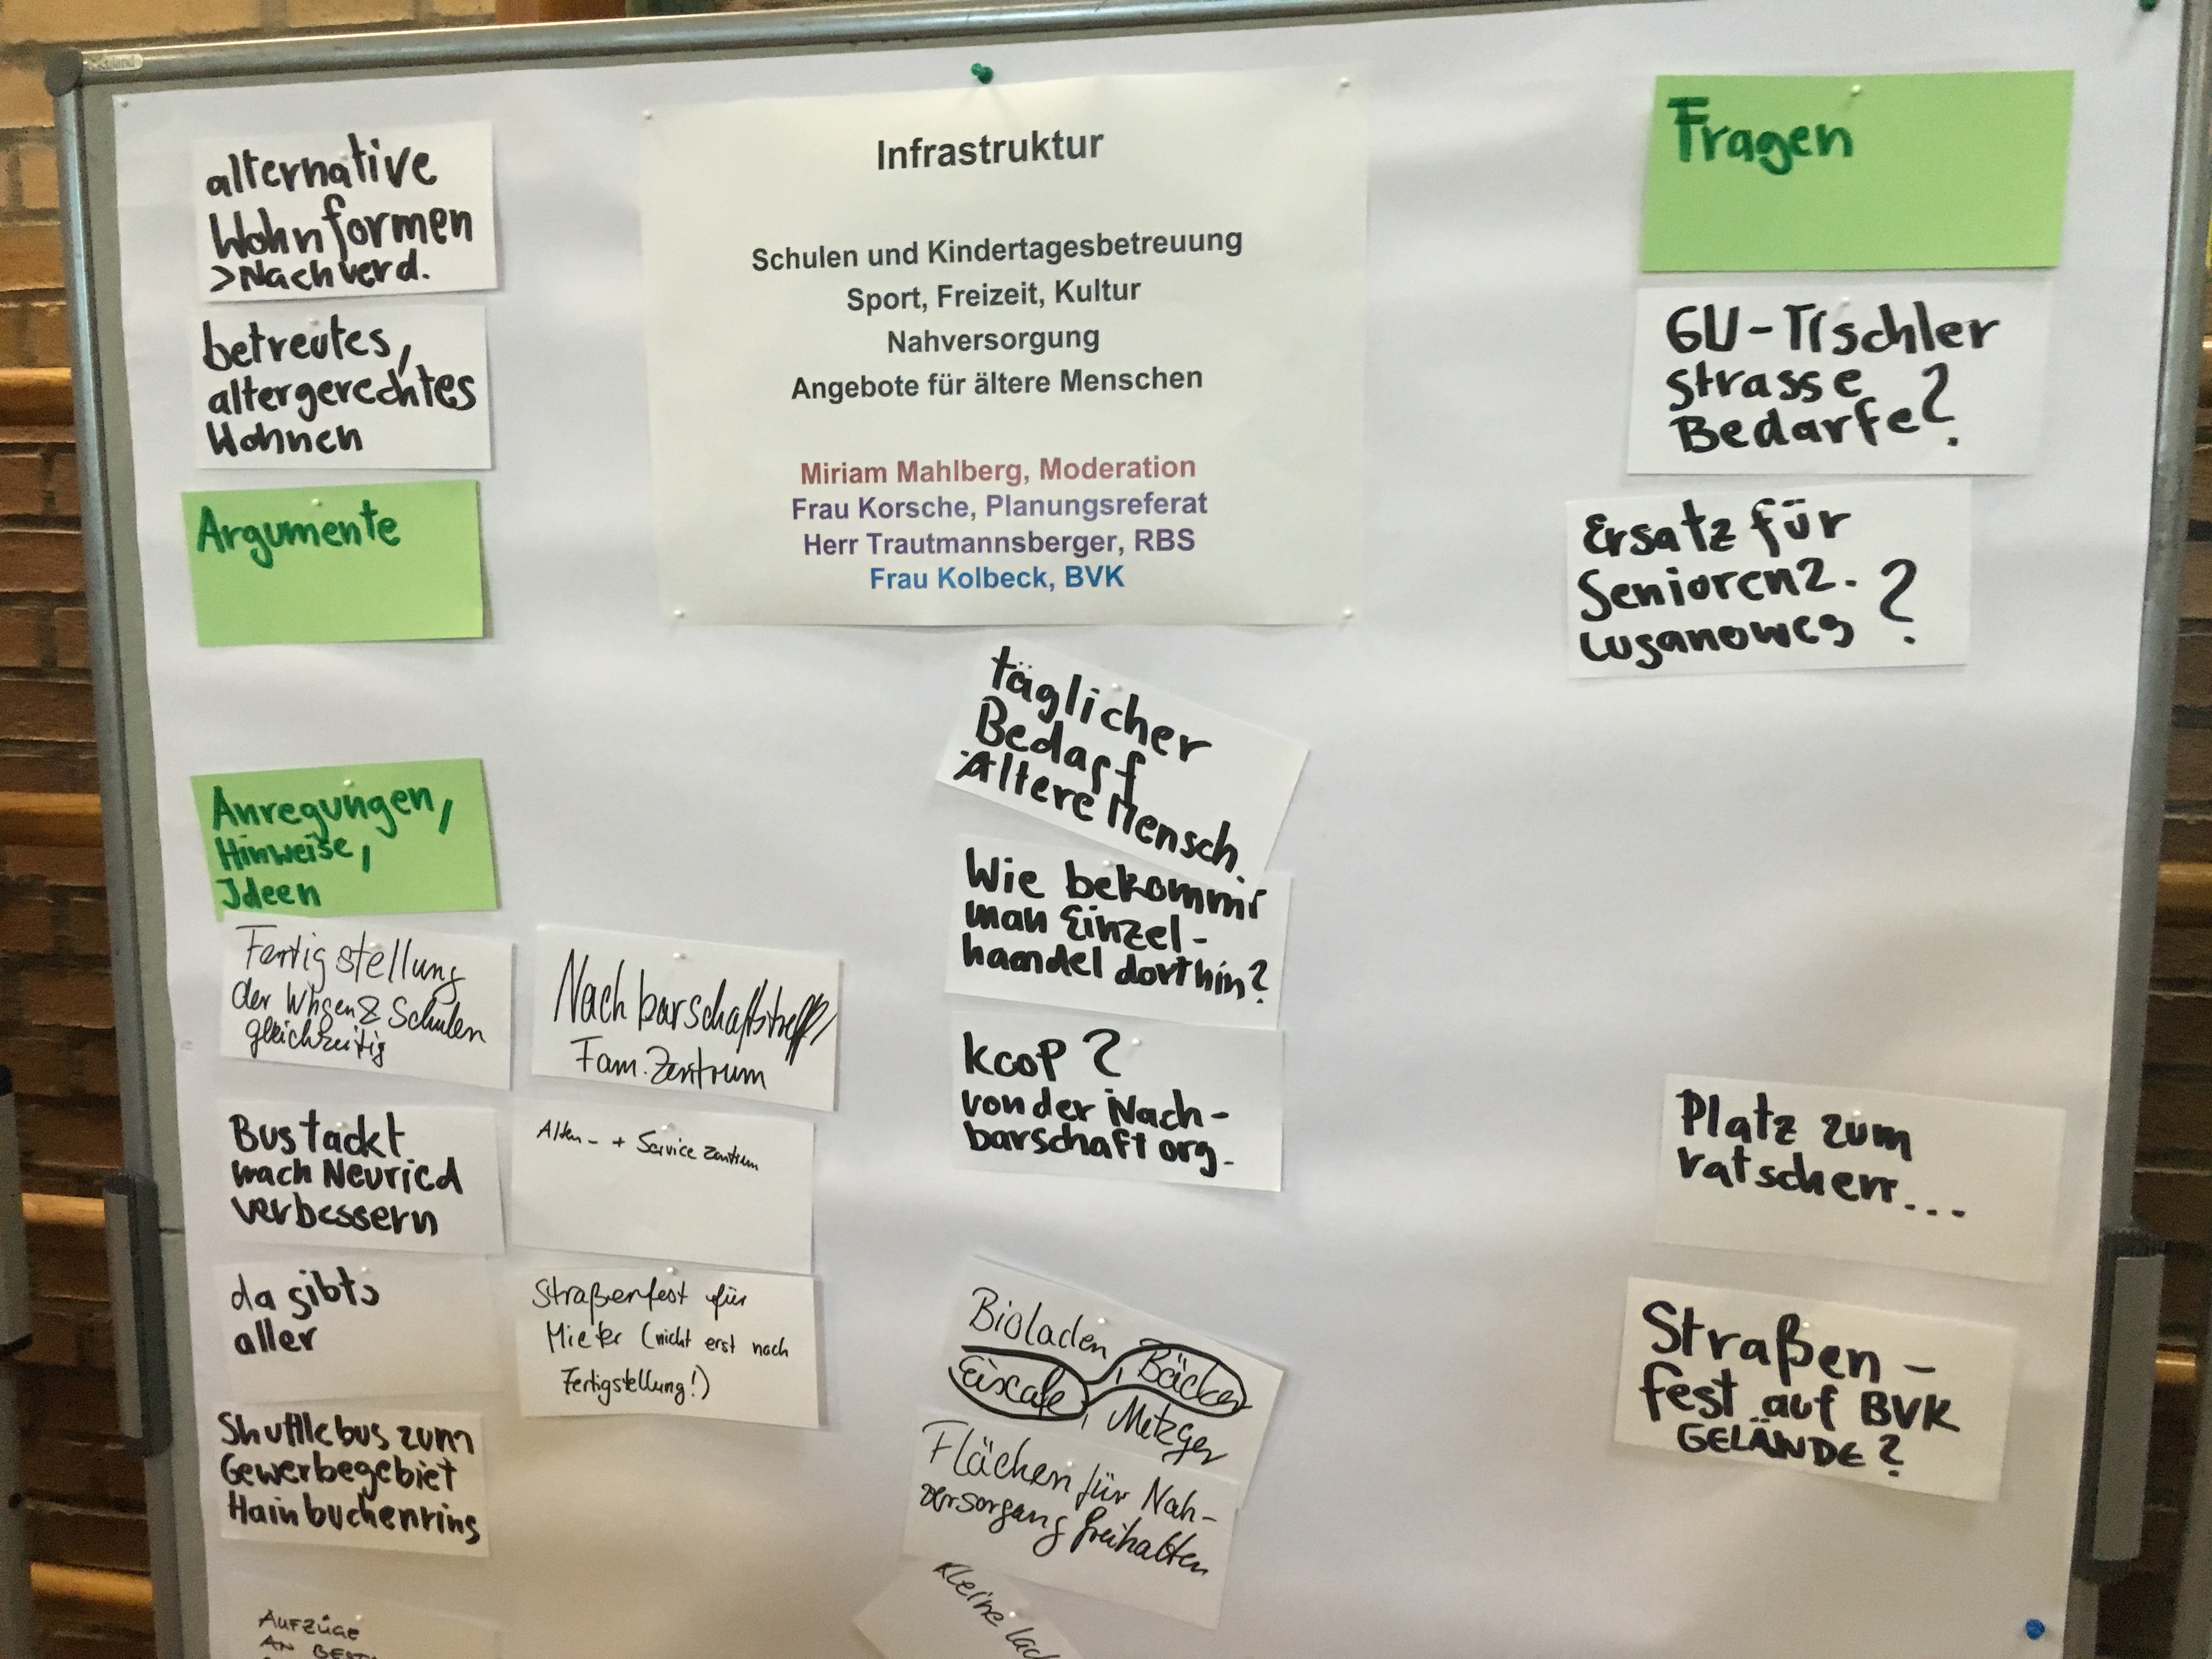 alternative
Wohnformen
>Nachverd.
betreutes,
altergerechtes
Wohnen
Argumente
Anregungen,
Hinweise,
Ideen
Fertigstellung
der Whgen & Schulen
gleichzeitig
Bustackt
nach Neuried
verbessern
da gibts
aller
Shuttlebus zum
Gewerbegebiet
Hainbuchenring
AUFZÜGE
AN
Nachbarschaftstreff/
Fam. Zentrum
Alten- + Service Zentrum
Straßenfest für
Mieter (nicht erst nach
Fertigstellung!)
Infrastruktur
Schulen und Kindertagesbetreuung
Sport, Freizeit, Kultur
Nahversorgung
Angebote für ältere Menschen
Miriam Mahlberg, Moderation
Frau Korsche, Planungsreferat
Herr Trautmannsberger, RBS
Frau Kolbeck, BVK
täglicher
Bedarf
Ältere Mensch.
Wie bekommt
man Einzel-
handel dorthin?
KooP?
von der Nach-
barschaft org.
Bioladen, Bäcker
Eiscafe, Metzger
Flächen für Nah-
versorgung freihalten
Kleine
Fragen
GU-Tischler
strasse
Bedarfe?
Ersatz für
Seniorenz.
Luganoweg ?
Platz zum
ratschen...
Straßen-
fest auf BVK
GELÄNDE?